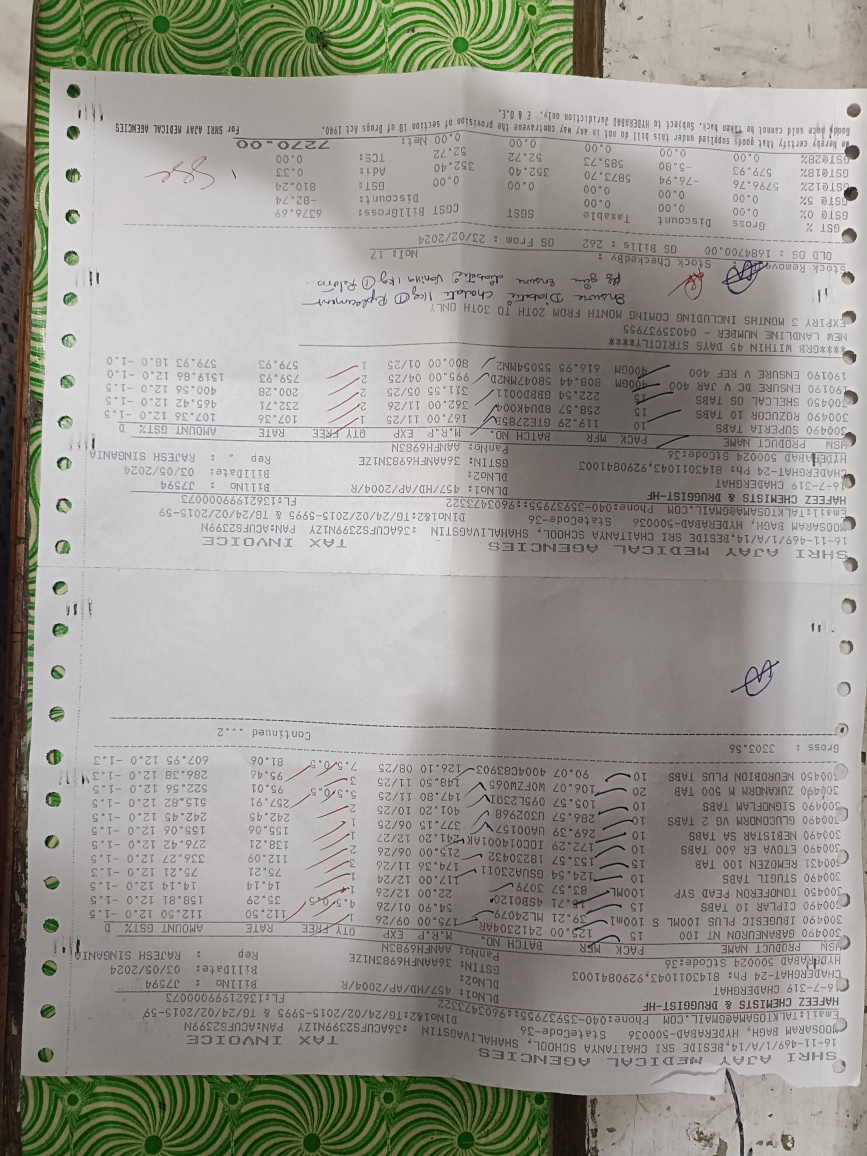 SHRI AJAY MEDICAL AGENCIES TAX INVOICE
16-11-469/1/A/14,BESIDE SRI CHAITANYA SCHOOL, SHAHALIVAGSTIN :36ACUFS2399N1ZY PAN:ACUFS2399N
MOOSARAM BAGH, HYDERABAD-500036 StateCode-36 DlNO1&2:TG/24/02/2015-5995 & TG/24/02/2015-59
Email:TALKTOSAMA@GMAIL.COM Phone:040-35937955::9603473322 FL:13621999000073
HAFEEZ CHEMISTS & DRUGGIST-HF
16-7-319 CHADERGHAT DLNO1: 457/HD/AP/2004/R BillNO : J7594
CHADERGHAT-24 Ph: 8143011043,9290841003 DLNO2: BillDate: 03/05/2024
HYDERABAD 500024 StCode:36 GSTIN: 36AANFH6983N1ZE Rep : RAJESH SINGANIA
PanNo: AANFH6983N
HSN PRODUCT NAME PACK MFR BATCH NO. M.R.P EXP QTY FREE RATE AMOUNT GST% D
300490 GABANEURON NT 100 15 125.00 2412304AR 175.00 09/26 1 112.50 112.50 12.0 -1.5
300490 IBUGESIC PLUS 100ML S 100ml 39.21 ML24079 54.90 01/26 4.5/0.5 35.29 158.81 12.0 -1.5
300490 CIPLAR 10 TABS 15 15.71 4SB0120 22.00 12/26 1 14.14 14.14 12.0 -1.5
300450 TONOFERON PEAD SYP 100ML 83.57 3079 117.00 12/24 1 75.21 75.21 12.0 -1.3
300490 STUGIL TABS 10 124.54 GSUA23011 174.36 11/26 3 112.09 336.27 12.0 -1.5
300431 REMOZEN 100 TAB 15 153.57 18230432 215.00 06/26 2 138.21 276.42 12.0 -1.5
300490 ETOVA ER 600 TABS 10 172.29 IOC01400 241.20 12/27 1 155.06 155.06 12.0 -1.5
300490 NEBISTAR SA TABS 10 269.39 UA00157 377.15 06/25 1 242.45 242.45 12.0 -1.5
300490 GLUCONORM VG 2 TABS 15 286.57 U302968 401.20 10/25 2 257.91 515.82 12.0 -1.5
300490 SIGNOFLAM TABS 10 105.57 095L2391 147.80 11/25 5.5/0.5 95.01 522.56 12.0 -1.5
300490 ZUKANORM M 500 TAB 20 106.07 WOFZW065 148.50 11/25 3 95.46 286.38 12.0 -1.3
300450 NEUROBION PLUS TABS 10 90.07 4004C83903 126.10 08/25 7.5/0.5 81.06 607.95 12.0 -1.3
Gross : 3303.56
Continued ...2
SHRI AJAY MEDICAL AGENCIES TAX INVOICE
16-11-469/1/A/14,BESIDE SRI CHAITANYA SCHOOL, SHAHALIVAGSTIN :36ACUFS2399N1ZY PAN:ACUFS2399N
MOOSARAM BAGH, HYDERABAD-500036 StateCode-36 DlNO1&2:TG/24/02/2015-5995 & TG/24/02/2015-59
Email:TALKTOSAMA@GMAIL.COM Phone:040-35937955::9603473322 FL:13621999000073
HAFEEZ CHEMISTS & DRUGGIST-HF
16-7-319 CHADERGHAT DLNO1: 457/HD/AP/2004/R BillNO : J7594
CHADERGHAT-24 Ph: 8143011043,9290841003 DLNO2: BillDate: 03/05/2024
HYDERABAD 500024 StCode:36 GSTIN: 36AANFH6983N1ZE Rep . : RAJESH SINGANIA
PanNo: AANFH6983N
HSN PRODUCT NAME PACK MFR BATCH NO. M.R.P EXP QTY FREE RATE AMOUNT GST% D
300490 SUPERIA TABS 10 119.29 GTE2785B 167.00 11/25 1 107.36 107.36 12.0 -1.5
300490 ROZUCOR 10 TABS 15 258.57 BDU4K004 362.00 11/26 2 232.71 465.42 12.0 -1.5
300450 SHELCAL OS TABS 15 222.54 GBBD0011 311.55 05/25 2 200.28 400.56 12.0 -1.5
190190 ENSURE DC V JAR 400 400GM 808.44 58047MM2D 995.00 04/25 2 759.93 1519.86 12.0 -1.0
190190 ENSURE V REF 400 400GM 616.95 55054MN2 800.00 01/25 1 579.93 579.93 18.0 -1.0
****GRB WITHIN 45 DAYS STRICTLY****
NEW LANDLINE NUMBER - 04035937955
EXPIRY 3 MONTHS INCLUDING COMING MONTH FROM 20TH TO 30TH ONLY
Ensure Diabetic Chocolate 1kg ① Replacement
Pls give Ensure diabetic Vanilla 1kg ① Return.
Stock Removed Stock CheckedBy : NoI: 17
OLD OS : 1684700.00 OS Bills : 262 OS From : 23/02/2024
GST % Gross Discount Taxable SGST CGST BillGross: 6376.69
GST@ 0% 0.00 0.00 0.00 0.00 0.00 Discount: -82.74
GST@ 5% 0.00 0.00 0.00 0.00 0.00 GST: 810.24
GST@12% 5796.76 -76.94 5873.70 352.40 352.40 Adj: 0.33
GST@18% 579.93 -5.80 585.73 52.72 52.72 TCS: 0.00
GST@28% 0.00 0.00 0.00 0.00 0.00 Net: 7270.00
We hereby certify that goods supplied under this bill do not in any way contravene the provision of section 18 of Drugs Act 1940.
Goods once sold cannot be Taken back. Subject to HYDERABAD Juridiction only. E & O.E. For SHRI AJAY MEDICAL AGENCIES